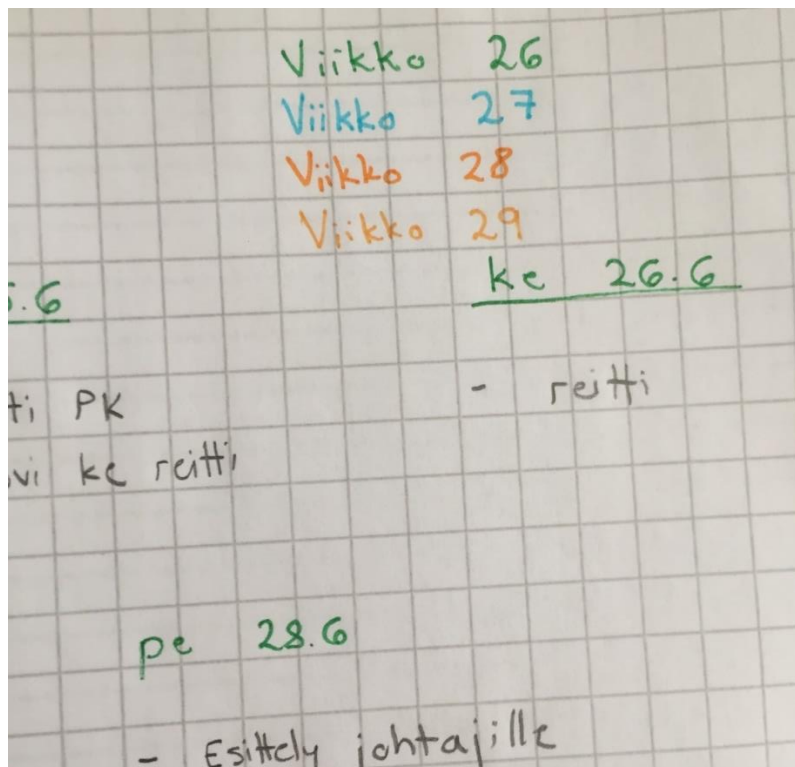 Viikko 26
Viikko 27
Viikko 28
Viikko 29
.6
ke 26.6
ti PK
- reitti
vi ke reitti
pe 28.6
- Esittely johtajille